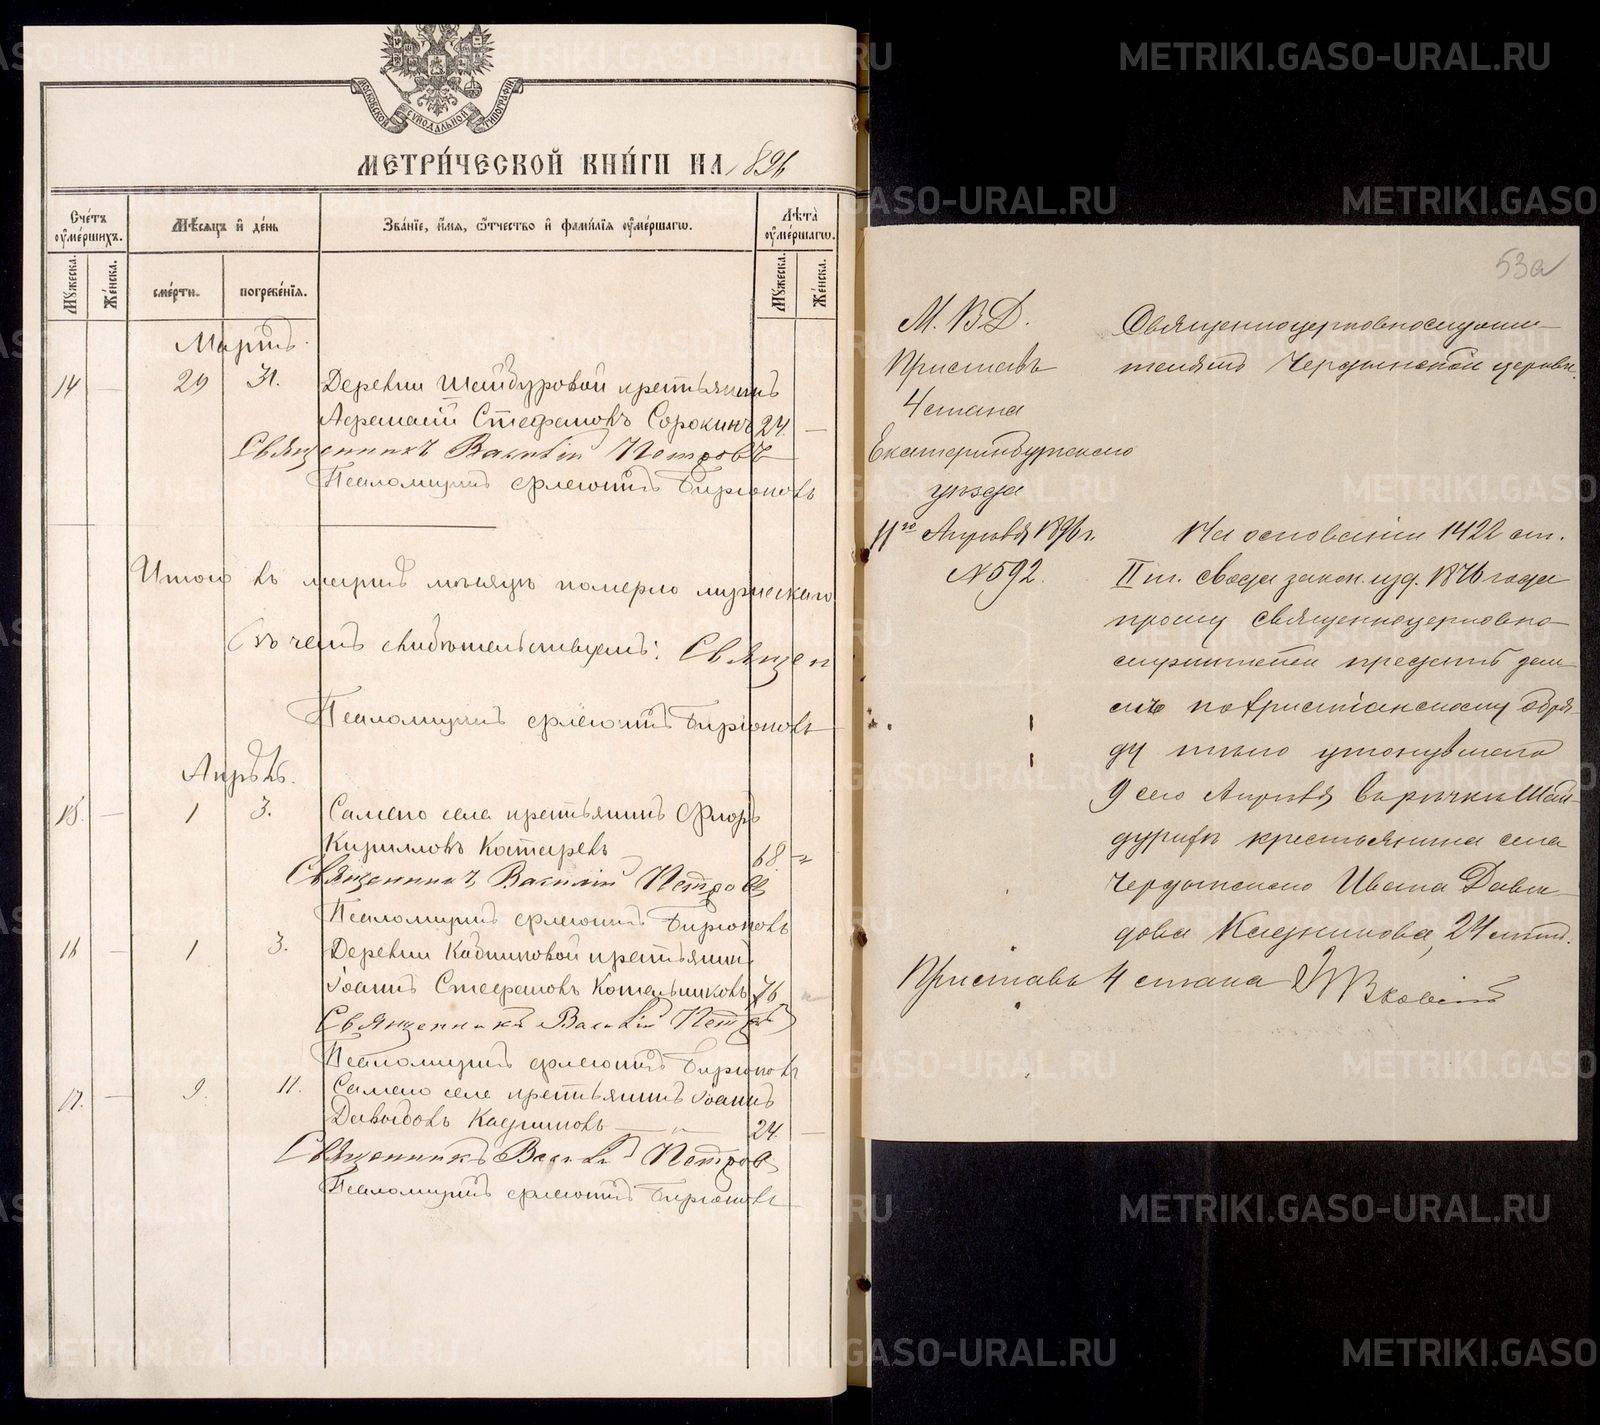 МОСКОВСКОЙ СѴНОДАЛЬНОЙ ТИПОГРАФІИ
МЕТРИ́ЧЕСКОЙ КНИ́ГИ НА 1896
Сче́тъ ᲂу҆ме́ршихъ.
Мѣ́сяцъ и҆ де́нь
Зва́нїе, и҆́мя, ѻ҆́тчество и҆ фами́лїя ᲂу҆ме́ршагѡ.
Лѣ́та ᲂу҆ме́ршагѡ.
Мꙋ́жеска.
Же́нска.
сме́рти.
погребе́нїя.
Мꙋ́жеска.
Же́нска.
Мартъ.
14 — 29 31. Деревни Шайдуровой крестьянинъ
Аѳанасій Стефановъ Сорокинъ 24. —
Священникъ Василій Петровъ
Псаломщикъ Флегонтъ Бирюковъ
Итого въ мартѣ мѣсяцѣ померло мужескаго
въ чемъ свидѣтельствуемъ: Священ
Псаломщикъ Флегонтъ Бирюковъ
Апрѣль.
15. — 1 3. Самаго села крестьянинъ Флоръ
Кирилловъ Котыревъ 68 —
Священникъ Василій Петровъ
Псаломщикъ Флегонтъ Бирюковъ
16 — 1 3. Деревни крестьянинъ
Іоаннъ Стефановъ Котельниковъ 76
Священникъ Василій Петровъ
Псаломщикъ Флегонтъ Бирюковъ
17. — 9. 11. Самаго села крестьянинъ Іоаннъ
Давыдовъ Кадниковъ 24. —
Священникъ Василій Петровъ
Псаломщикъ Флегонтъ Бирюковъ
53а
М. В. Д.
Приставъ
4 стана
Екатеринбургскаго
уѣзда
11го Апрѣля 1896 г.
№ 592.
Священноцерковнослужи-
телямъ Чердынской церкви.
На основаніи 1422 ст.
II т. свода закон. изд. 1876 года
прошу священноцерковно-
служителей предать зем-
лѣ по христіанскому обря-
ду тѣло утонувшаго
9 сего Апрѣля въ рѣчкѣ Шай-
дурихѣ крестьянина села
Чердынскаго Ивана Давы-
дова Кадникова, 24 лѣтъ.
Приставъ 4 стана
METRIKI.GASO-URAL.RU